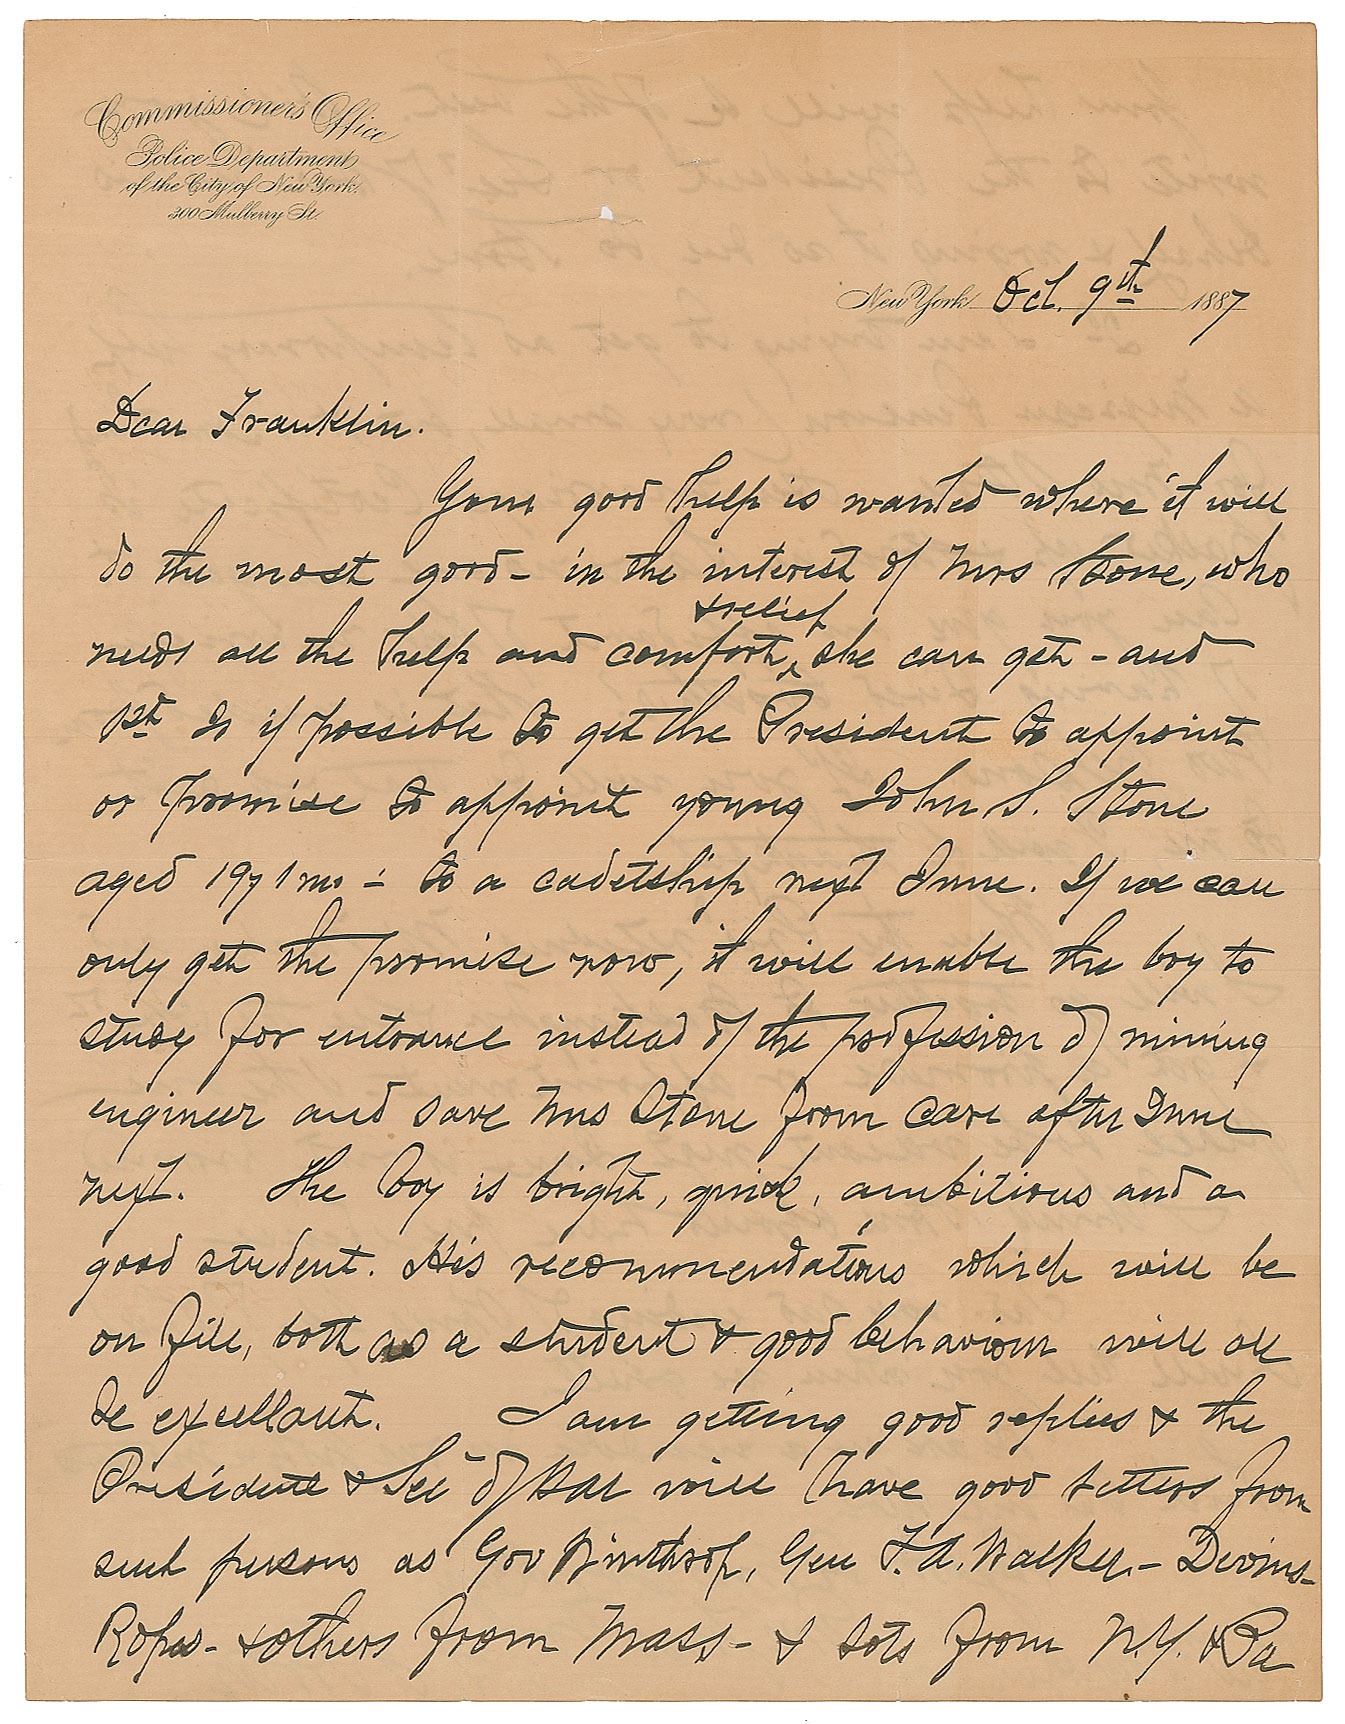 Commissioner's Office
Police Department
of the City of New York.
300 Mulberry St.
New York Oct. 9th 1887
Dear Franklin.
Your good help is wanted where it will
do the most good - in the interest of Mrs Stone, who
& relief
needs all the help and comfort, ^ she can get - and
1st Is if possible to get the President to appoint
or promise to appoint young John S. Stone
aged 19y 1mo - to a cadetship next June. If we can
only get the promise now, it will enable the boy to
study for entrance instead of the profession of mining
engineer and save Mrs Stone from care after June
next. The boy is bright, quick, ambitious and a
good student. His recommendations which will be
on file, both as a student & good behaviour will all
be excellant. I am getting good replies & the
President & Sec of War will have good letters from
such persons as Gov Winthrop, Gen F. A. Walker. - Devins -
Ropes - & others from Mass - & lots from N.Y. & Pa